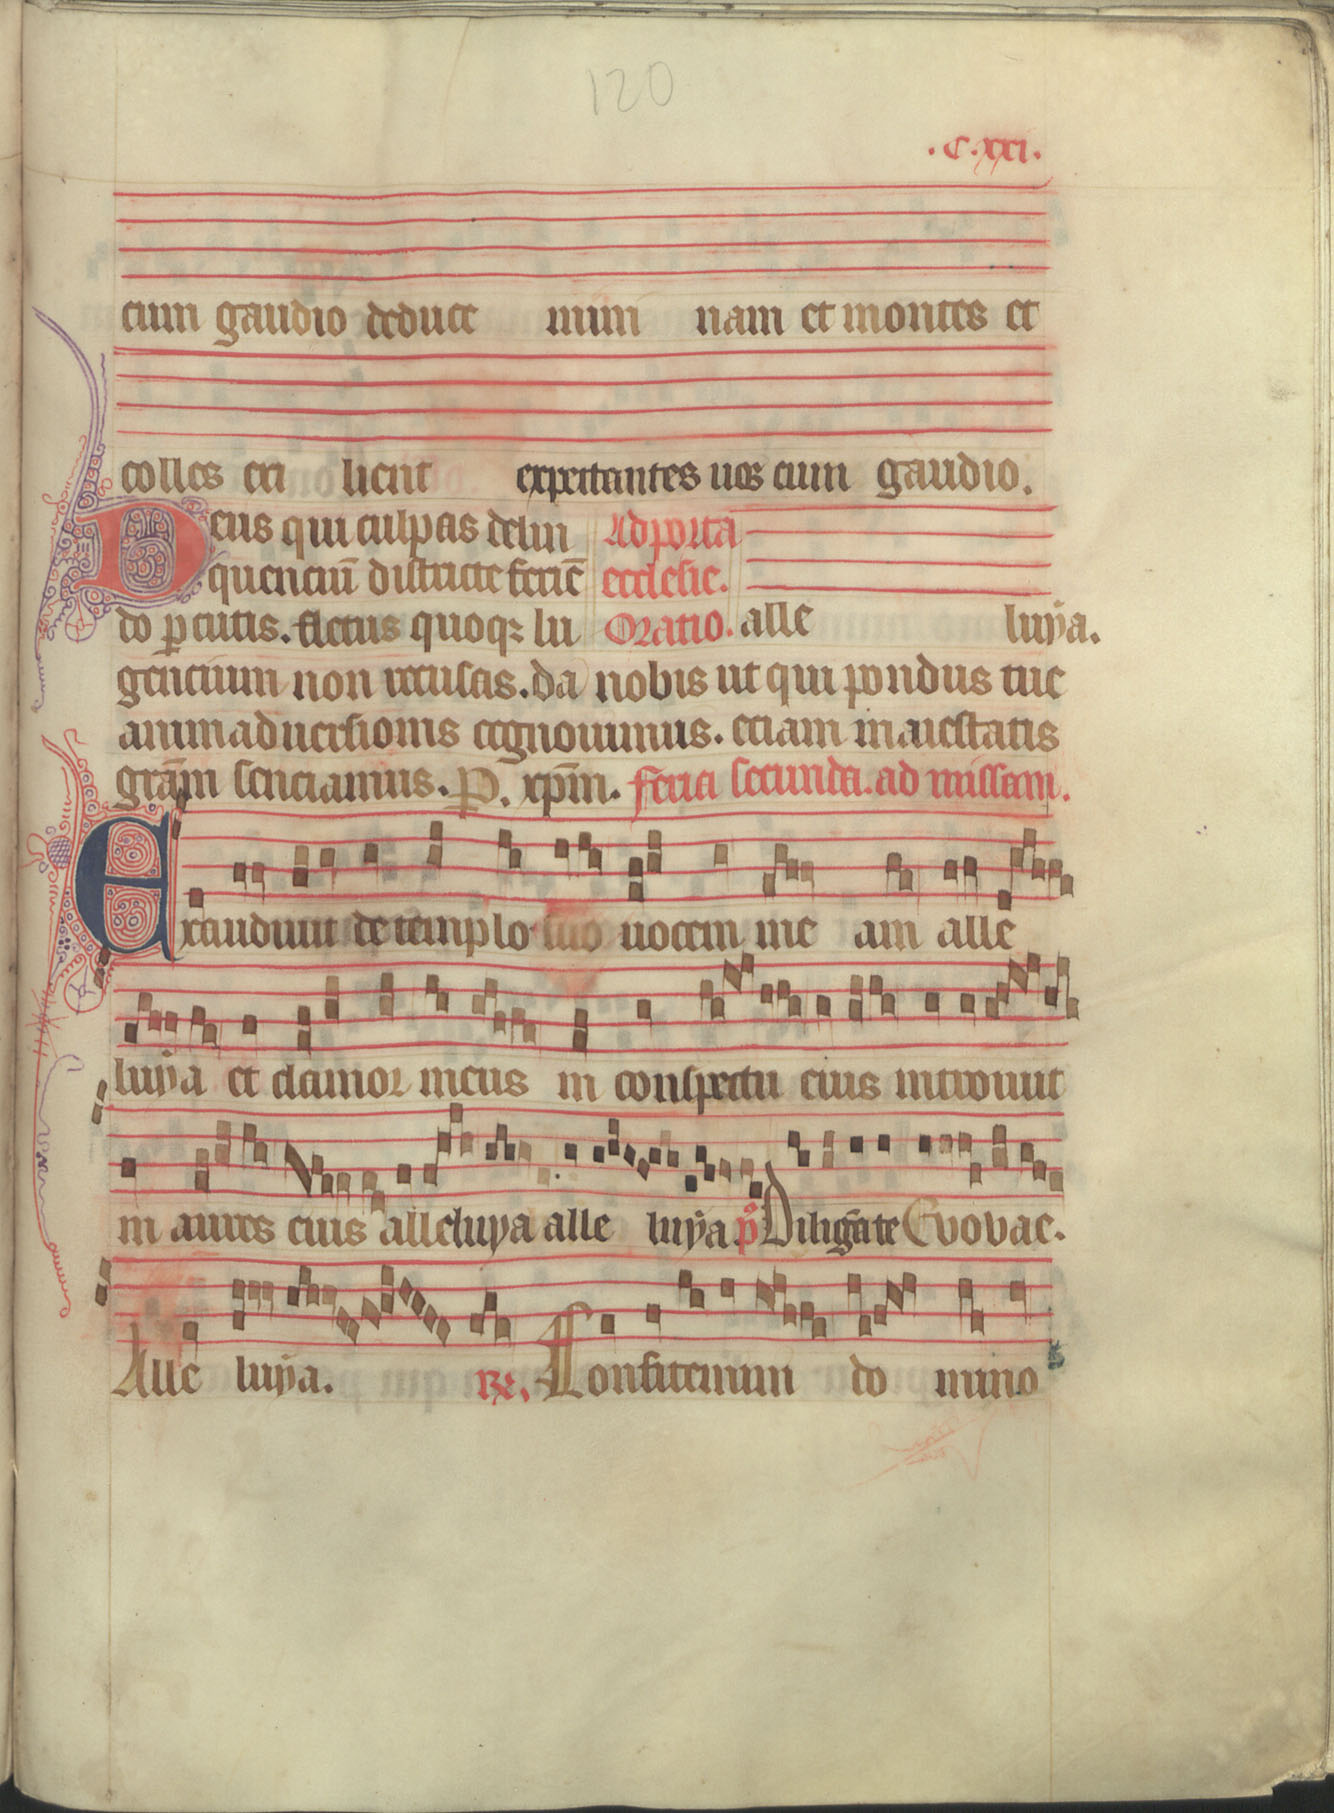 120
.C.xxi.
cum gaudio deduce mini nam et montes et
colles exi lient expectantes uos cum gaudio.
Deus qui culpas delin Ad porta
quenciū districte feriē ecclesie.
do ꝑcutis. fletus quoqꝫ lu Oratio. alle luẏa.
gencium non recusas. da nobis ut qui pondus tue
animaduersionis cognouimus. eciam in aiestatis
grām senciamus. P. xp̄m. feria secunda. ad missam.
Exaudiuit de templo suo uocem me am alle
luẏa et clamor meus in conspectu eius introiuit
in aures eius alleluya alle luẏa p̊ Diligā te Evovae.
Alle luẏa. R͞e. Confitemini do mino